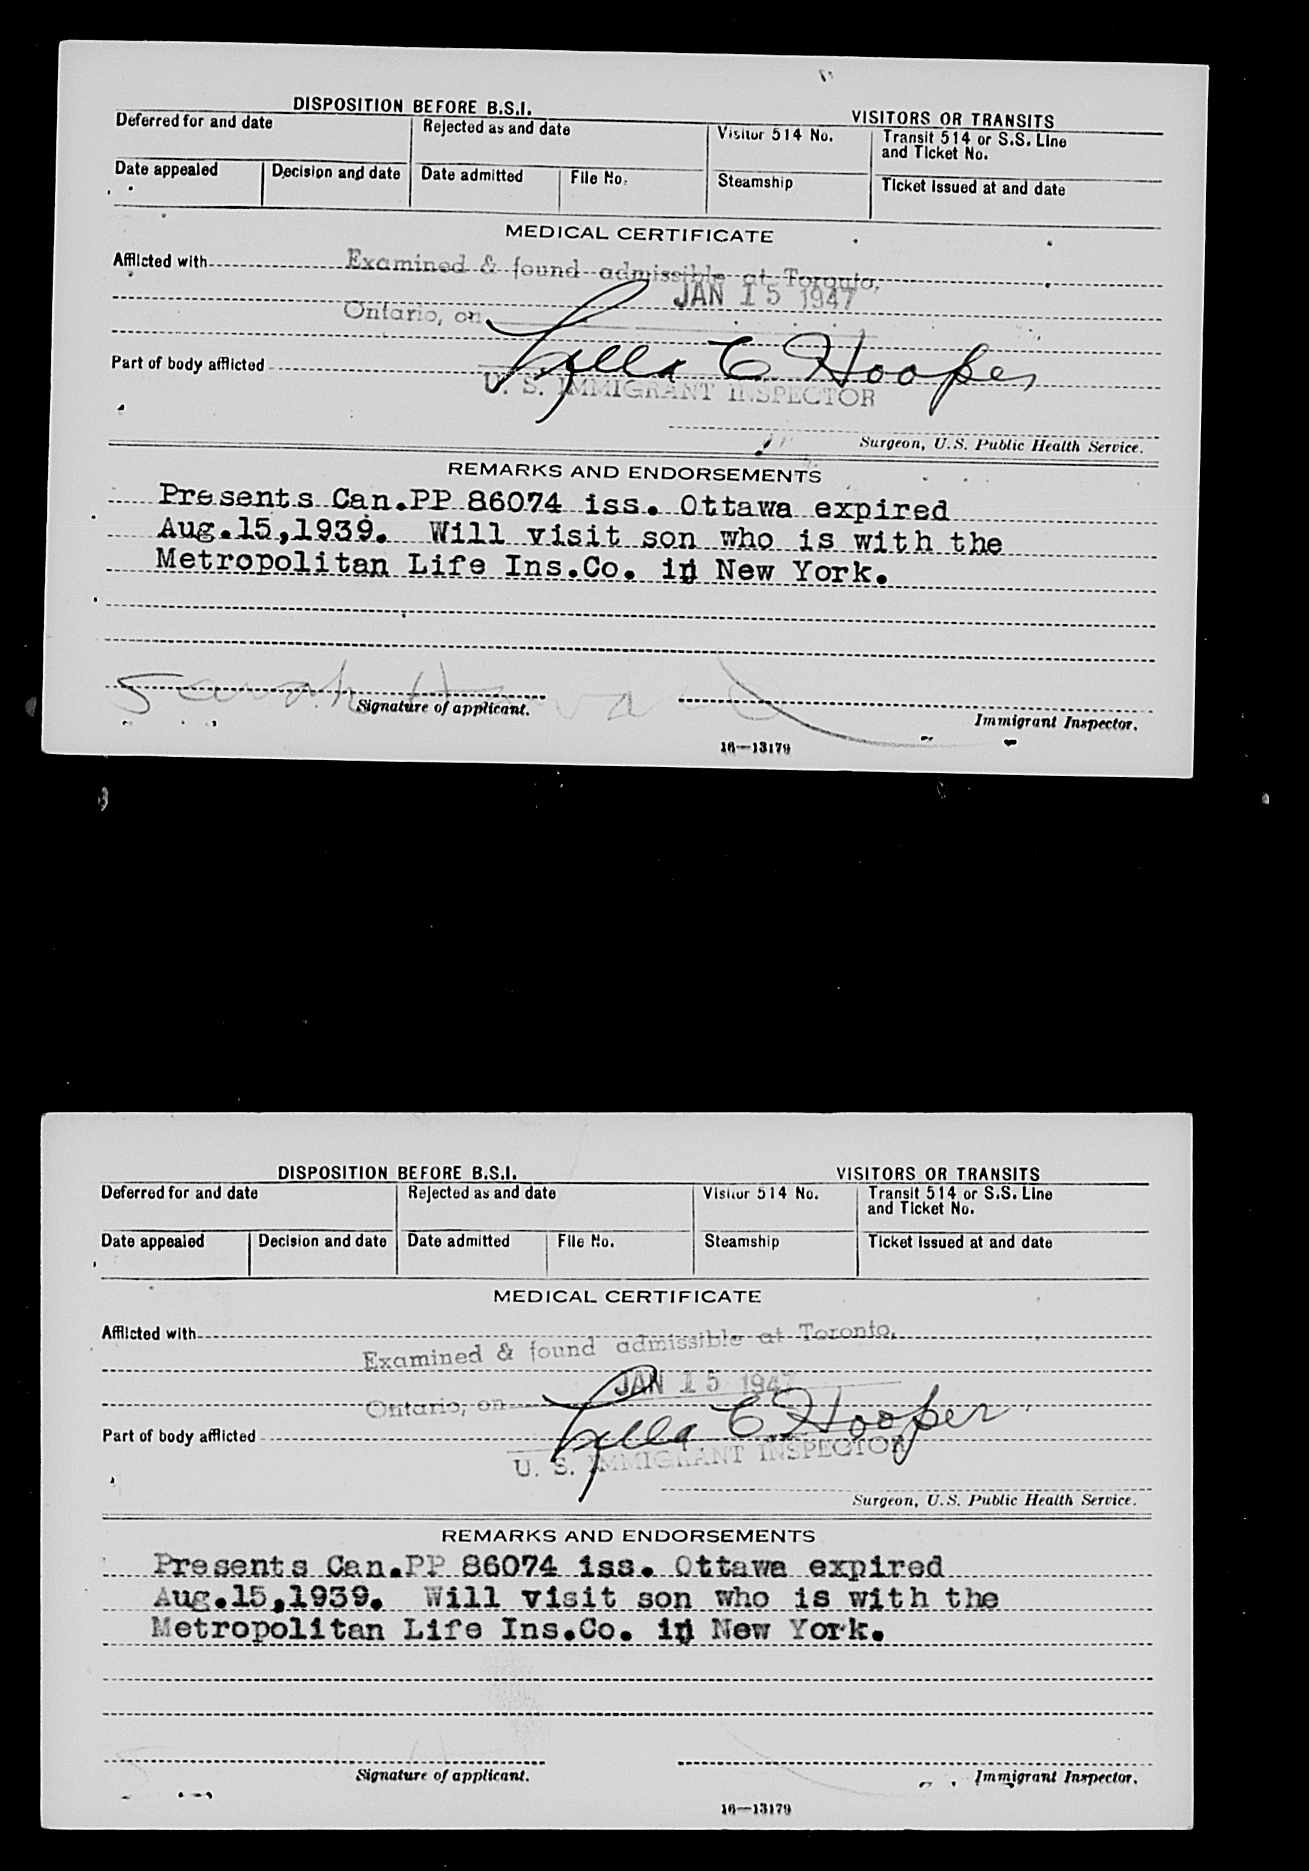 DISPOSITION BEFORE B.S.I.
VISITORS OR TRANSITS
Deferred for and date
Rejected as and date
Visitor 514 No.
Transit 514 or S.S. Line
and Ticket No.
Date appealed
Decision and date
Date admitted
File No.
Steamship
Ticket issued at and date
MEDICAL CERTIFICATE
Afflicted with
Examined & found admissible at Toronto,
JAN 15 1947
Ontario, on
Part of body afflicted
C Hooper
U. S. IMMIGRANT INSPECTOR
Surgeon, U.S. Public Health Service.
REMARKS AND ENDORSEMENTS
Presents Can.PP 86074 iss. Ottawa expired
Aug.15,1939. Will visit son who is with the
Metropolitan Life Ins.Co. in New York.
Sarah
Signature of applicant.
Immigrant Inspector.
16—13179
DISPOSITION BEFORE B.S.I.
VISITORS OR TRANSITS
Deferred for and date
Rejected as and date
Visitor 514 No.
Transit 514 or S.S. Line
and Ticket No.
Date appealed
Decision and date
Date admitted
File No.
Steamship
Ticket issued at and date
MEDICAL CERTIFICATE
Afflicted with
Examined & found admissible at Toronto,
JAN 15 1947
Ontario, on
C. Hooper
Part of body afflicted
U. S. IMMIGRANT INSPECTOR
Surgeon, U.S. Public Health Service.
REMARKS AND ENDORSEMENTS
Presents Can.PP 86074 iss. Ottawa expired
Aug.15,1939. Will visit son who is with the
Metropolitan Life Ins.Co. in New York.
Signature of applicant.
Immigrant Inspector.
16—13179